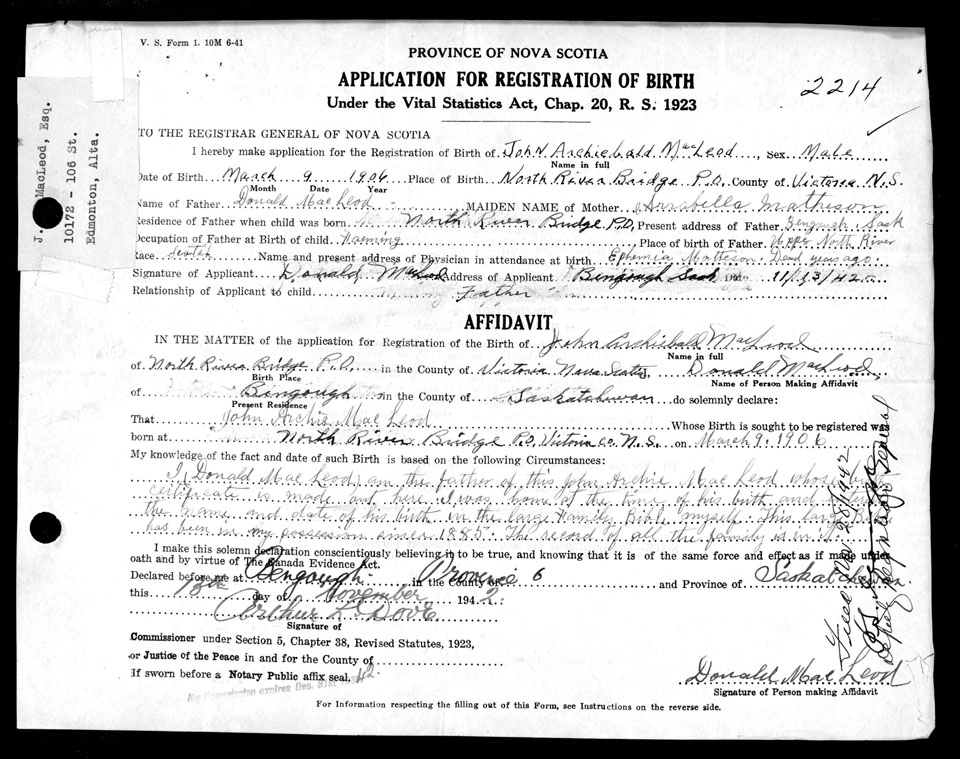 V. S. Form 1. 10M 6-41
PROVINCE OF NOVA SCOTIA
APPLICATION FOR REGISTRATION OF BIRTH
Under the Vital Statistics Act, Chap. 20, R. S. 1923
2214
J. MacLeod, Esq.
10172 - 106 St.
Edmonton, Alta.
TO THE REGISTRAR GENERAL OF NOVA SCOTIA
I hereby make application for the Registration of Birth of John Archiebald MacLeod, Sex Male
Name in full
Date of Birth March 9 1906 Place of Birth North River Bridge P.O. County of Victoria N.S.
Month Date Year
Name of Father Donald MacLeod - MAIDEN NAME of Mother Annabella Matheson
Residence of Father when child was born North River Bridge P.O, Present address of Father Bengough Sask
Occupation of Father at Birth of child Farming Place of birth of Father Upper North River
Race Scotch Name and present address of Physician in attendance at birth Ephemia Matteson Dead years ago
Signature of Applicant Donald MacLeod Address of Applicant Bengough Sask Date 11/13/42
Relationship of Applicant to child Father
AFFIDAVIT
IN THE MATTER of the application for Registration of the Birth of John Archiebald MacLeod
Name in full
of North River Bridge P.O, in the County of Victoria Nova Scotia, Donald MacLeod,
Birth Place Name of Person Making Affidavit
of Bengough in the County of Saskatchewan do solemnly declare:
Present Residence
That John Archie MacLeod Whose Birth is sought to be registered was
born at North River Bridge P.O, Victoria co. N.S. on March 9. 1906
My knowledge of the fact and date of such Birth is based on the following Circumstances:
I, (Donald MacLeod) am the father of this John Archie MacLeod whose birth
certificate is made out here. I was home at the time of his birth and
the name and date of his birth in the large Family Bible myself. This large
has been in my possession since 1885. The record of all the family is in it.
I make this solemn declaration conscientiously believing it to be true, and knowing that it is of the same force and effect as if made under
oath and by virtue of The Canada Evidence Act.
Declared before me at Bengough in the County of Province and Province of Saskatchewan
this 13th day of November 1942.
Arthur L. Dove
Signature of
Commissioner under Section 5, Chapter 38, Revised Statutes, 1923,
or Justice of the Peace in and for the County of
If sworn before a Notary Public affix seal.
My Commission expires Dec. 31st 42
Donald MacLeod
Signature of Person making Affidavit
For Information respecting the filling out of this Form, see Instructions on the reverse side.
Filed Nov. 28/1942
Deputy Registrar General